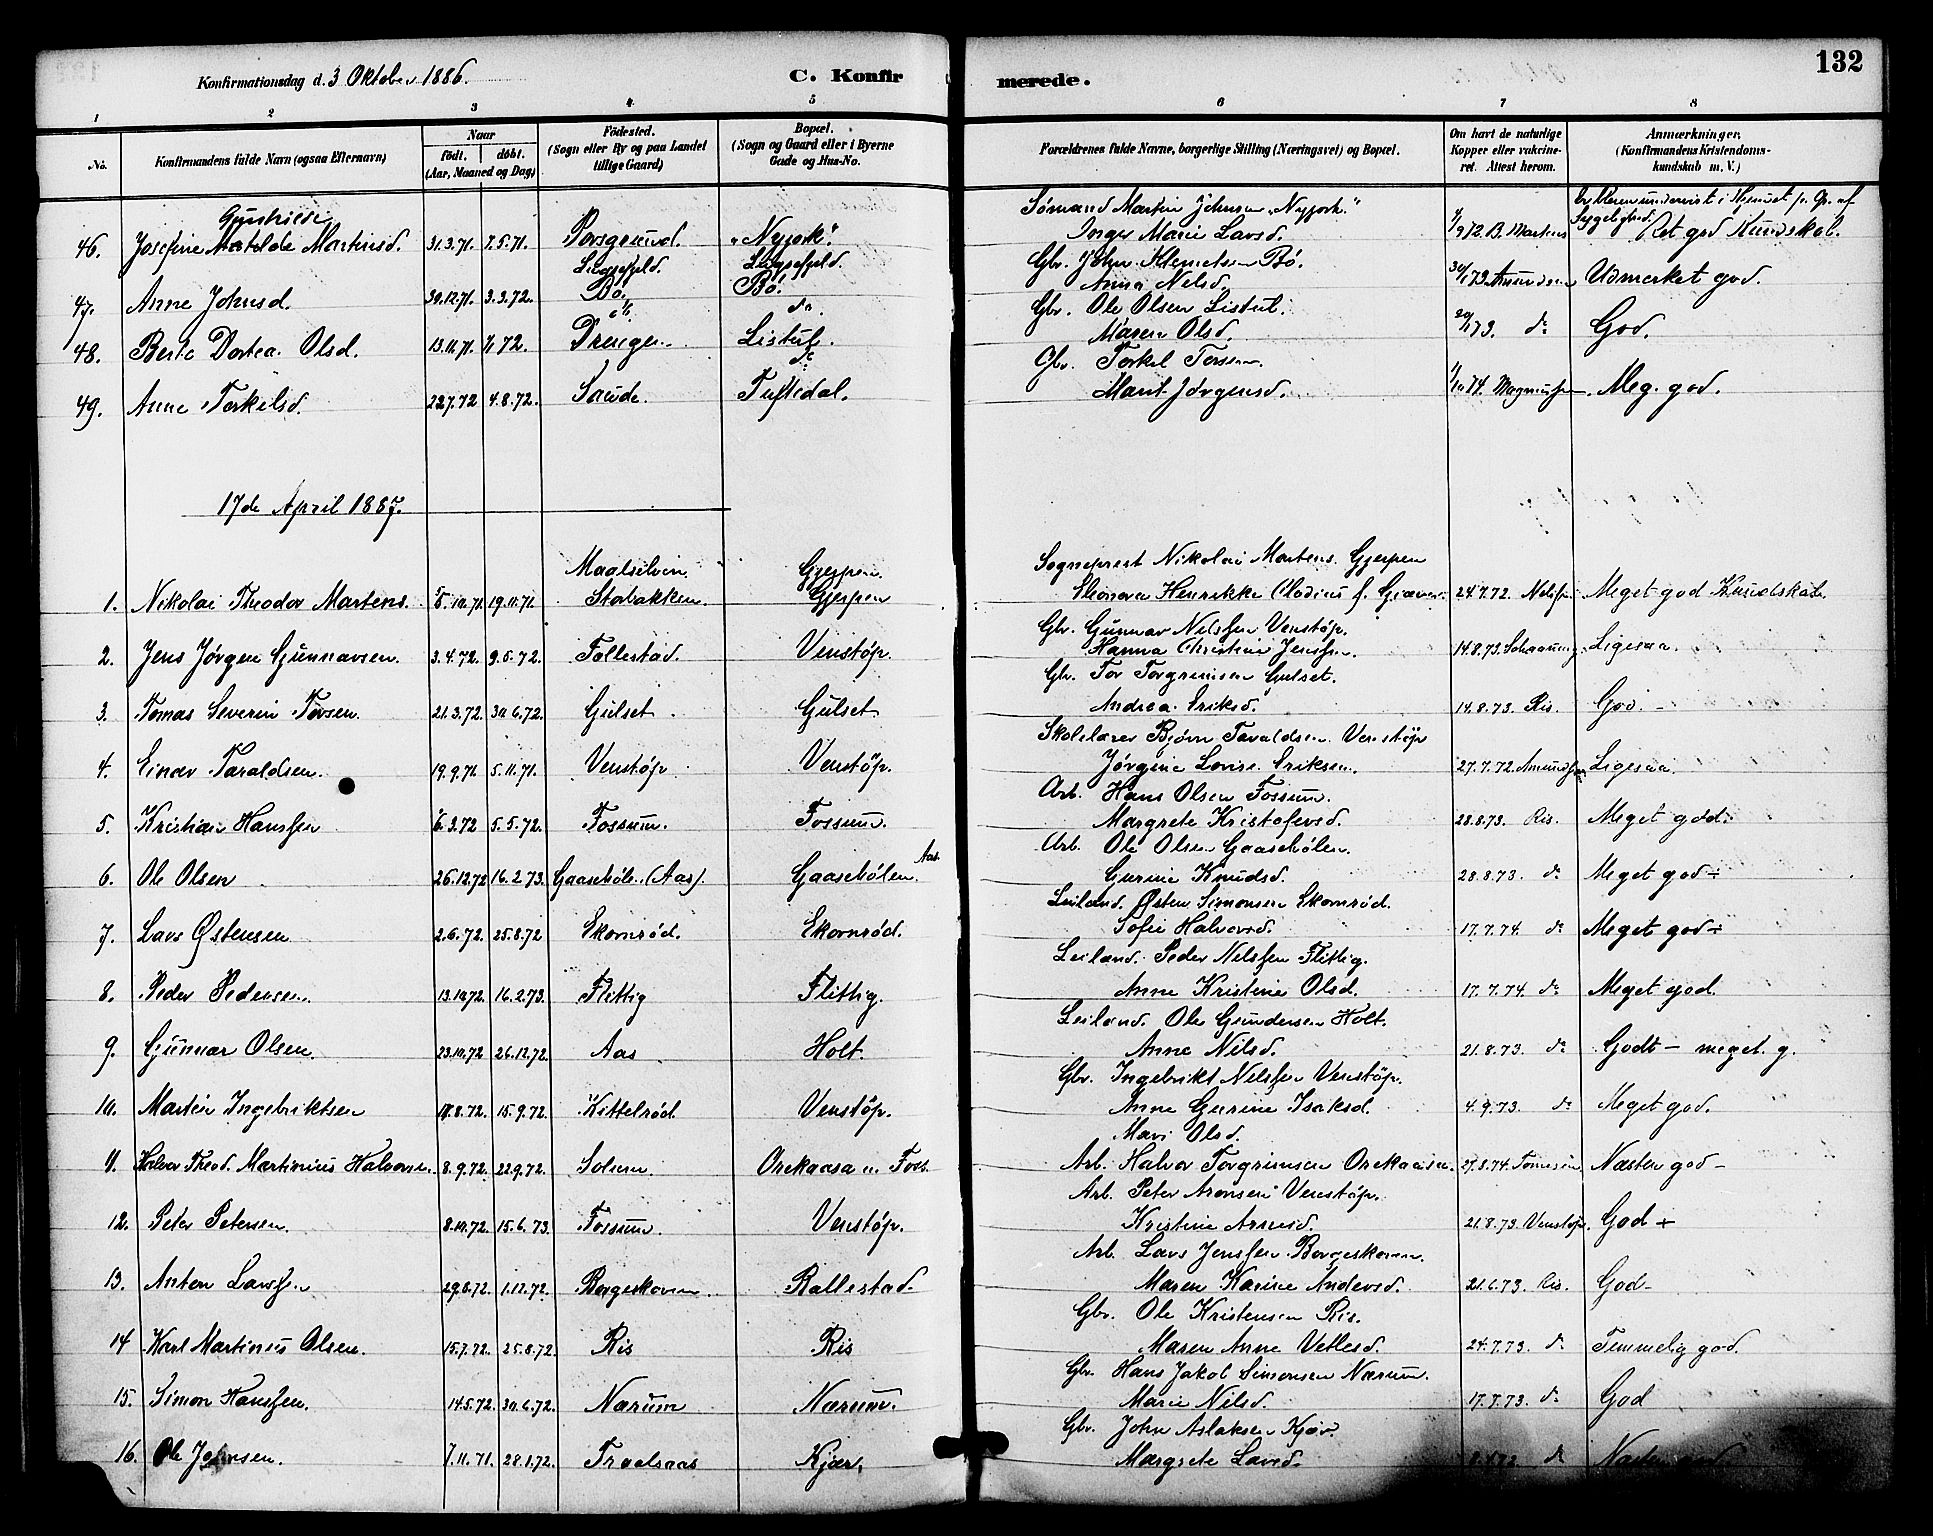 132
Konfirmationsdag d. 3 Oktober 1886.
C. Konfirmerede.
1 2 3 4 5 6 7 8
No.
Konfirmandens fulde Navn (ogsaa Efternavn)
Naar
födt. döbt.
(Aar, Maaned og Dag)
Födested.
(Sogn eller By og paa Landet
tillige Gaard)
Bopæl.
(Sogn og Gaard eller i Byerne
Gade og Hus-No.
Forældrenes fulde Navne, borgerlige Stilling (Næringsvei) og Bopæl.
Om havt de naturlige
Kopper eller vakcine-
ret. Attest herom.
Anmærkninger.
(Konfirmandens Kristendoms-
kundskab m. V.)
Sømand Martin Johnsen „Nyjork."
46. Josefine Matilde Martinsd. 31.3.71. 7.5.71. Porsgrund. „Nyjork". Inger Marie Larsd. B. Martens Ret god Kundskab.
Gbr. John Klemetsen Bø.
47. Anne Johnsd. 30.12.71. 3.3.72. Bø. Bø. Anna Nilsd. Udmerket god.
Gbr. Ole Olsen Listul.
48. Berte Dortea Olsd. 13.11.71. 72. Listul. Maren Olsd. do God.
Gbr. Torkel Torsen
49. Anne Torkilsd. 22.7.72 4.8.72. Saude. Tuftedal. Marit Jørgensd. Magnussen. Meg. god.
17de April 1887.
Maalselven. Gjerpen. Sogneprest Nikolai Martens. Gjerpen
1. Nikolai Theodor Martens. 5.10.71. 19.11.71. Stabakken. Gjerpen Eleonora Henrikke Clodius f. Græver. 24.7.72. Meget god Kundskab.
Gbr. Gunnar Nilssen Venstøp.
2. Jens Jørgen Gunnarsen. 3.4.72. 9.5.72. Follestad. Venstøp. Hanna Christine Jenssen. 14.8.73. Ligesaa.
Gbr. Tor Torgrimsen Gulset.
3. Tomas Severin Torsen. 21.3.72. 30.6.72. Gulset. Gulset Andrea Eriksd. 14.8.73. Ris. God.
Skolelærer Bjørn Taraldsen Venstøp
4. Einar Taraldsen. 19.9.71 5.11.71. Venstøp Venstøp. Jørgine Lovise Eriksen. 27.7.72. Amundsen Ligesaa.
Arb. Hans Olsen Fossum.
5. Kristian Hanssen 6.3.72 5.5.72. Fossum. Fossum. Margrete Kristofersd. 28.8.73. Ris. Meget god.
Arb. Ole Olsen Gaasehølen.
6. Ole Olsen 26.12.72 16.2.73. Gaasehøle. (Aas). Gaasehølen. Aas. Gurine Knudsd. 28.8.73. do Meget god ÷
Leiland. Østen Simonsen Ekornrød.
7. Lars Østensen 2.6.72. 25.8.72 Ekornrød. Ekornrød. Sofie Halvorsd. 17.7.74. do Meget god ÷
Leiland. Peder Nilssen Flittig.
8. Peder Pedersen. 13.10.72. 16.2.73. Flittig Flittig. Anne Kristine Olsd. 17.7.74. do Meget god.
Leiland. Ole Gundersen Holt.
9. Gunnar Olsen. 23.10.72 26.12.72. Aas Holt. Anne Nilsd. 21.8.73. do Godt — meget g.
Gbr. Ingebrikt Nilssen Venstøp.
10. Martin Ingebriktsen 8.72. 15.9.72. Kittelrød Venstøp. Anne Gurine Isaksd. 4.9.73. do Meget god.
Mari Olsd.
11. Halvor Theod. Martinius Halvorsen. 8.9.72. 22.9.72. Solum. Orekaasa u. Foss. Arb. Halvor Torgrimsen Orekaasa. 27.8.74. Næsten god —
Arb. Peter Aronsen Venstøp.
12. Peter Petersen. 8.10.72. 15.6.73. Fossum. Venstøp. Kristine Arnesd. 21.8.73. Venstøp. God +
Arb. Lars Jenssen Borgeskoven.
13. Anton Larssen 29.8.72. 1.12.72. Borgeskoven Ballestad. Maren Karine Andersd. 21.6.73. Ris. God —
Gbr. Ole Kristensen Ris.
14 Karl Martinius Olsen. 15.7.72. 25.8.72. Ris Ris Maren Anne Vetlesd. 24.7.73. do Temmelig god.
Gbr. Hans Jakob Simonsen Nærum.
15. Simon Hanssen. 14.5.72. 30.6.72. Nærum Nærum. Marie Nilsd. 17.7.73. do God
Gbr. John Aslaksen Kjær.
16. Ole Johnsen. 7.11.71. 28.1.72. Traalsaas Kjær. Margrete Larsd. do